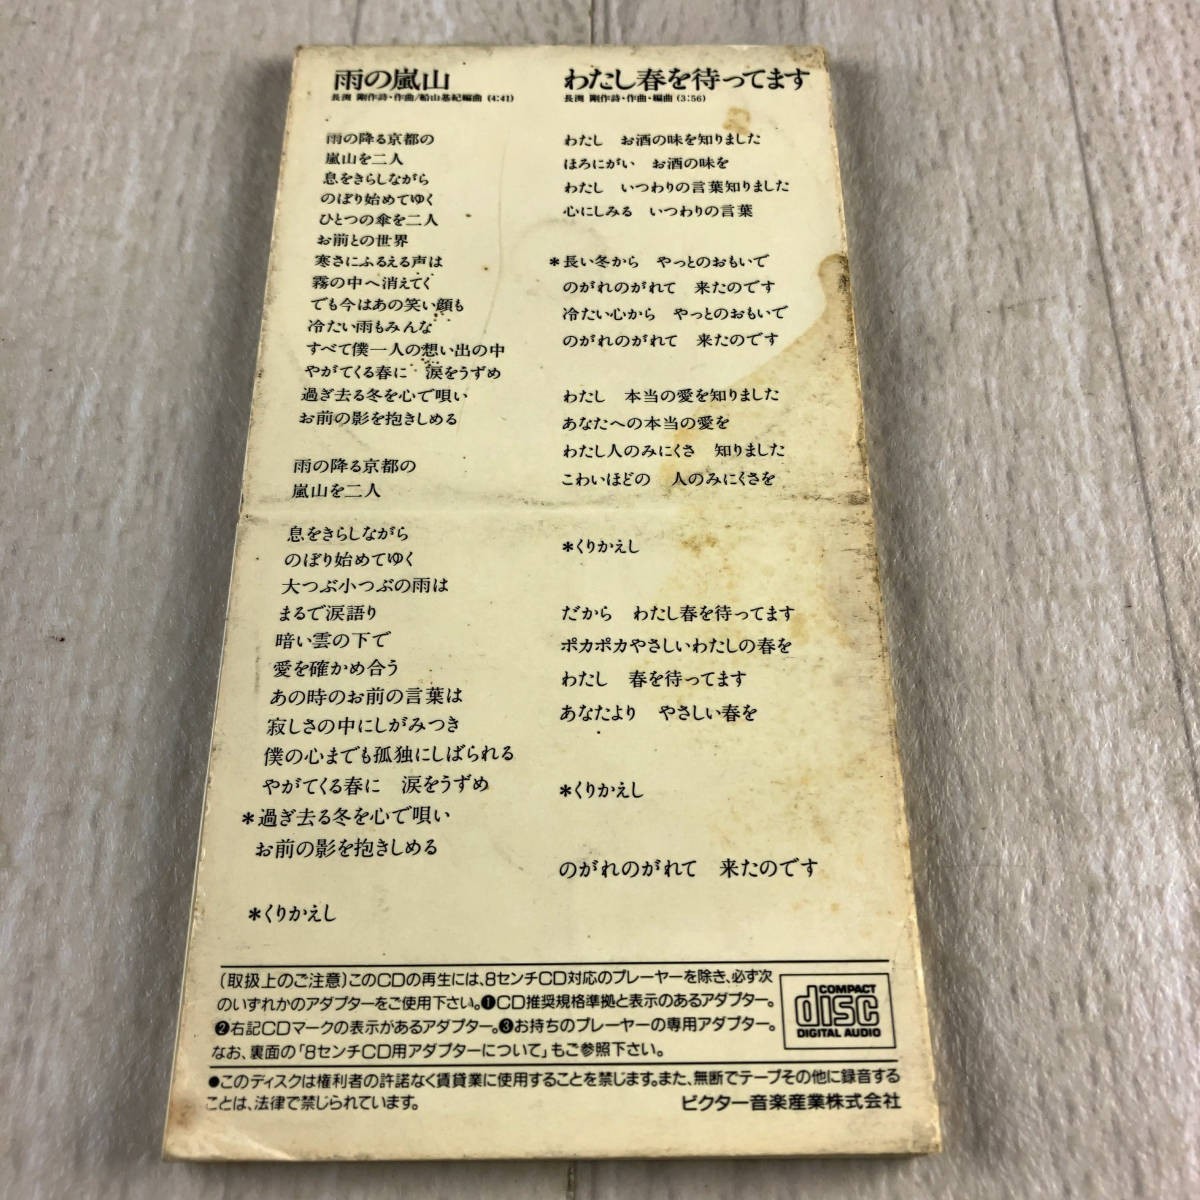 雨の嵐山
長渕 剛作詩・作曲/船山基紀編曲 (4:41)
雨の降る京都の
嵐山を二人
息をきらしながら
のぼり始めてゆく
ひとつの傘を二人
お前との世界
寒さにふるえる声は
霧の中へ消えてく
でも今はあの笑い顔も
冷たい雨もみんな
すべて僕一人の想い出の中
やがてくる春に 涙をうずめ
過ぎ去る冬を心で唄い
お前の影を抱きしめる
雨の降る京都の
嵐山を二人
息をきらしながら
のぼり始めてゆく
大つぶ小つぶの雨は
まるで涙語り
暗い雲の下で
愛を確かめ合う
あの時のお前の言葉は
寂しさの中にしがみつき
僕の心までも孤独にしばられる
やがてくる春に 涙をうずめ
*過ぎ去る冬を心で唄い
お前の影を抱きしめる
*くりかえし
わたし春を待ってます
長渕 剛作詩・作曲・編曲 (3:56)
わたし お酒の味を知りました
ほろにがい お酒の味を
わたし いつわりの言葉知りました
心にしみる いつわりの言葉
*長い冬から やっとのおもいで
のがれのがれて 来たのです
冷たい心から やっとのおもいで
のがれのがれて 来たのです
わたし 本当の愛を知りました
あなたへの本当の愛を
わたし人のみにくさ 知りました
こわいほどの 人のみにくさを
*くりかえし
だから わたし春を待ってます
ポカポカやさしいわたしの春を
わたし 春を待ってます
あなたより やさしい春を
*くりかえし
のがれのがれて 来たのです
〔取扱上のご注意〕このCDの再生には、8センチCD対応のプレーヤーを除き、必ず次
のいずれかのアダプターをご使用下さい。❶CD推奨規格準拠と表示のあるアダプター。
❷右記CDマークの表示があるアダプター。❸お持ちのプレーヤーの専用アダプター。
なお、裏面の「8センチCD用アダプターについて」もご参照下さい。
COMPACT
disc
DIGITAL AUDIO
●このディスクは権利者の許諾なく賃貸業に使用することを禁じます。また、無断でテープその他に録音する
ことは、法律で禁じられています。
ビクター音楽産業株式会社